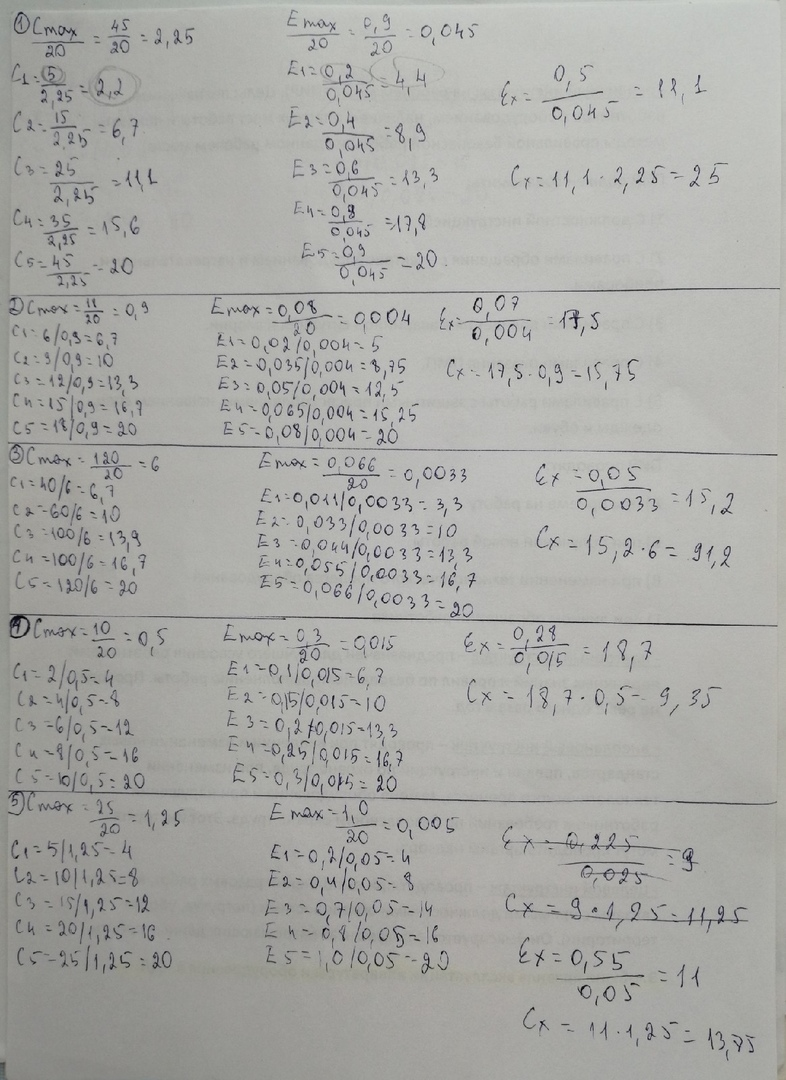 ① Cmax/20 = 45/20 = 2,25
C1 = 5/2,25 = 2,2
C2 = 15/2,25 = 6,7
C3 = 25/2,25 = 11,1
C4 = 35/2,25 = 15,6
C5 = 45/2,25 = 20
Emax/20 = 0,9/20 = 0,045
E1 = 0,2/0,045 = 4,4
E2 = 0,4/0,045 = 8,9
E3 = 0,6/0,045 = 13,3
E4 = 0,8/0,045 = 17,8
E5 = 0,9/0,045 = 20
Ex = 0,5/0,045 = 11,1
Cx = 11,1 · 2,25 = 25
② Cmax = 11/20 = 0,9
C1 = 6/0,9 = 6,7
C2 = 9/0,9 = 10
C3 = 12/0,9 = 13,3
C4 = 15/0,9 = 16,7
C5 = 18/0,9 = 20
Emax = 0,08/20 = 0,004
E1 = 0,02/0,004 = 5
E2 = 0,035/0,004 = 8,75
E3 = 0,05/0,004 = 12,5
E4 = 0,065/0,004 = 16,25
E5 = 0,08/0,004 = 20
Ex = 0,07/0,004 = 17,5
Cx = 17,5 · 0,9 = 15,75
③ Cmax = 120/20 = 6
C1 = 40/6 = 6,7
C2 = 60/6 = 10
C3 = 100/6 = 13,9
C4 = 100/6 = 16,7
C5 = 120/6 = 20
Emax = 0,066/20 = 0,0033
E1 = 0,011/0,0033 = 3,3
E2 = 0,033/0,0033 = 10
E3 = 0,044/0,0033 = 13,3
E4 = 0,055/0,0033 = 16,7
E5 = 0,066/0,0033 = 20
Ex = 0,05/0,0033 = 15,2
Cx = 15,2 · 6 = 91,2
④ Cmax = 10/20 = 0,5
C1 = 2/0,5 = 4
C2 = 4/0,5 = 8
C3 = 6/0,5 = 12
C4 = 8/0,5 = 16
C5 = 10/0,5 = 20
Emax = 0,3/20 = 0,015
E1 = 0,1/0,015 = 6,7
E2 = 0,15/0,015 = 10
E3 = 0,2/0,015 = 13,3
E4 = 0,25/0,015 = 16,7
E5 = 0,3/0,015 = 20
Ex = 0,28/0,015 = 18,7
Cx = 18,7 · 0,5 = 9,35
⑤ Cmax = 25/20 = 1,25
C1 = 5/1,25 = 4
C2 = 10/1,25 = 8
C3 = 15/1,25 = 12
C4 = 20/1,25 = 16
C5 = 25/1,25 = 20
Emax = 1,0/20 = 0,005
E1 = 0,2/0,05 = 4
E2 = 0,4/0,05 = 8
E3 = 0,7/0,05 = 14
E4 = 0,8/0,05 = 16
E5 = 1,0/0,05 = 20
Ex = 0,225/0,025 = 9
Cx = 9 · 1,25 = 11,25
Ex = 0,55/0,05 = 11
Cx = 11 · 1,25 = 13,75